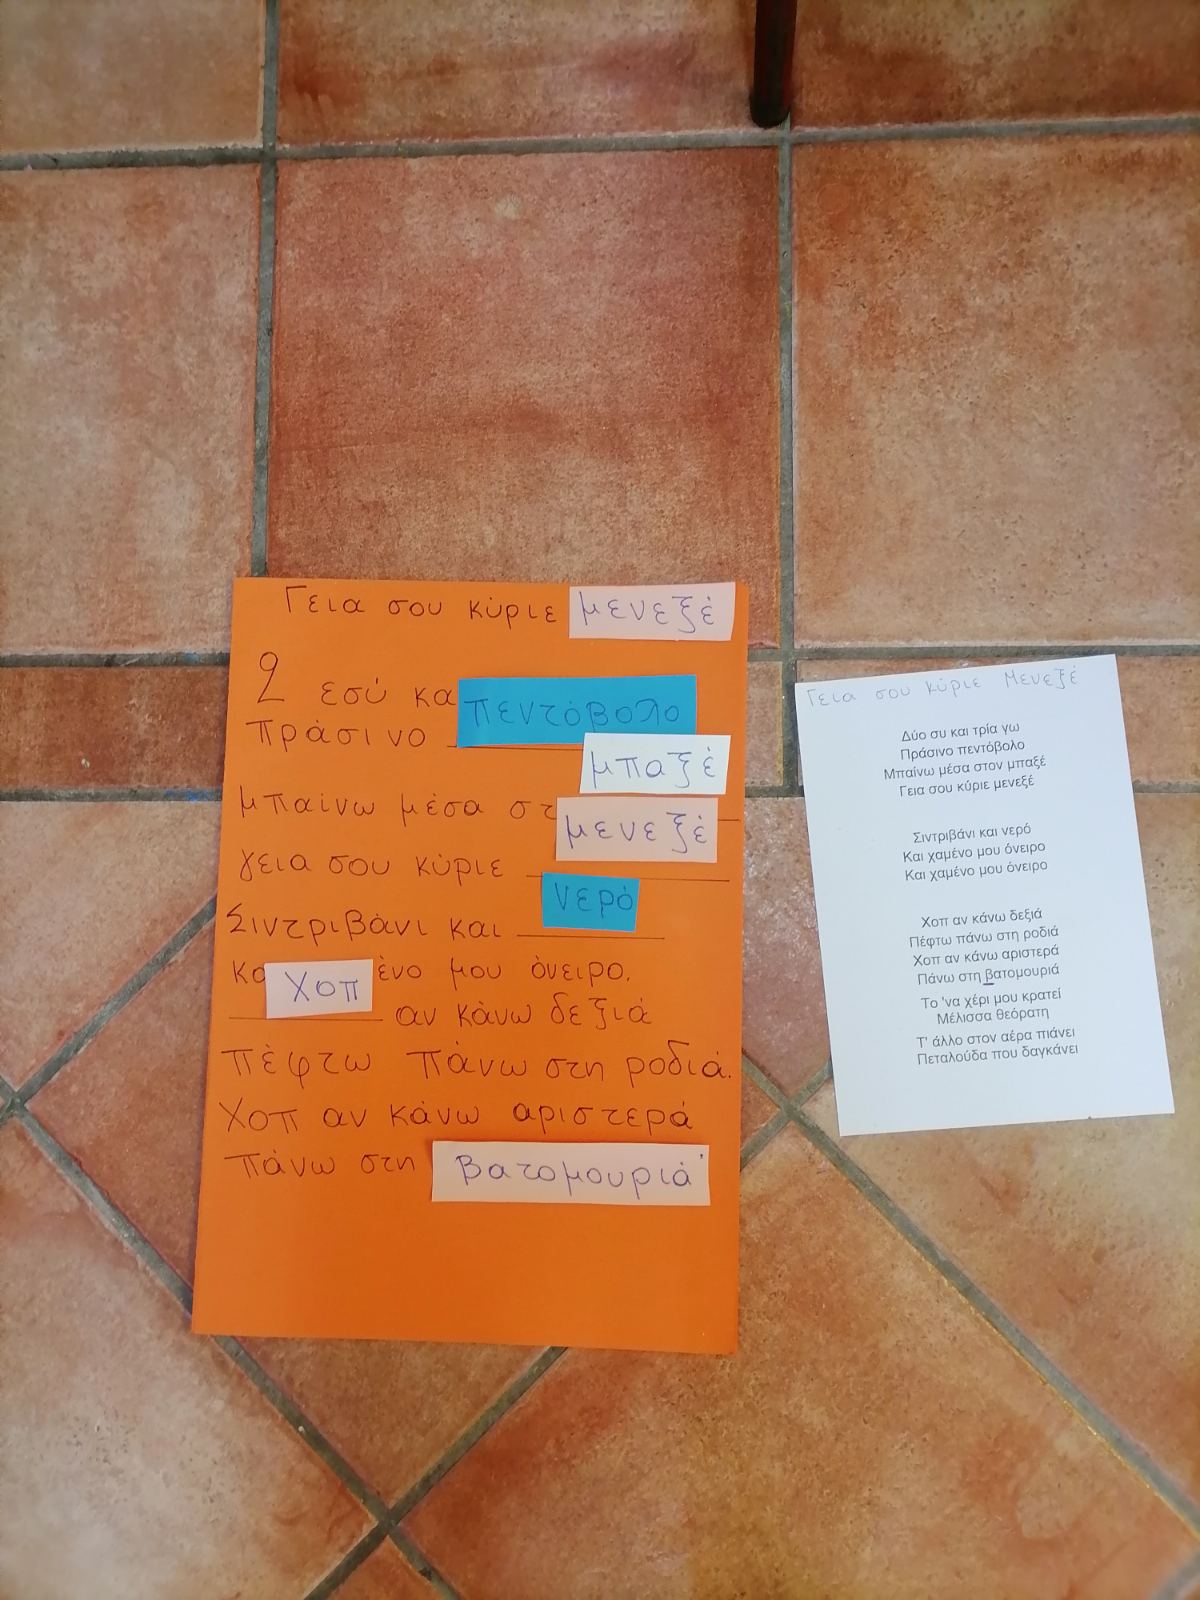 Γεια σου κύριε μενεξέ
2 εσύ κα
πράσινο πεντόβολο
μπαίνω μέσα στ μπαξέ
γεια σου κύριε μενεξέ
Σιντριβάνι και νερό
κα ένο μου όνειρο.
Χοπ αν κάνω δεξιά
πέφτω πάνω στη ροδιά.
Χοπ αν κάνω αριστερά
πάνω στη βατομουριά
Γεια σου κύριε Μενεξέ
Δύο συ και τρία γω
Πράσινο πεντόβολο
Μπαίνω μέσα στον μπαξέ
Γεια σου κύριε μενεξέ
Σιντριβάνι και νερό
Και χαμένο μου όνειρο
Και χαμένο μου όνειρο
Χοπ αν κάνω δεξιά
Πέφτω πάνω στη ροδιά
Χοπ αν κάνω αριστερά
Πάνω στη βατομουριά
Το 'να χέρι μου κρατεί
Μέλισσα θεόρατη
Τ' άλλο στον αέρα πιάνει
Πεταλούδα που δαγκάνει